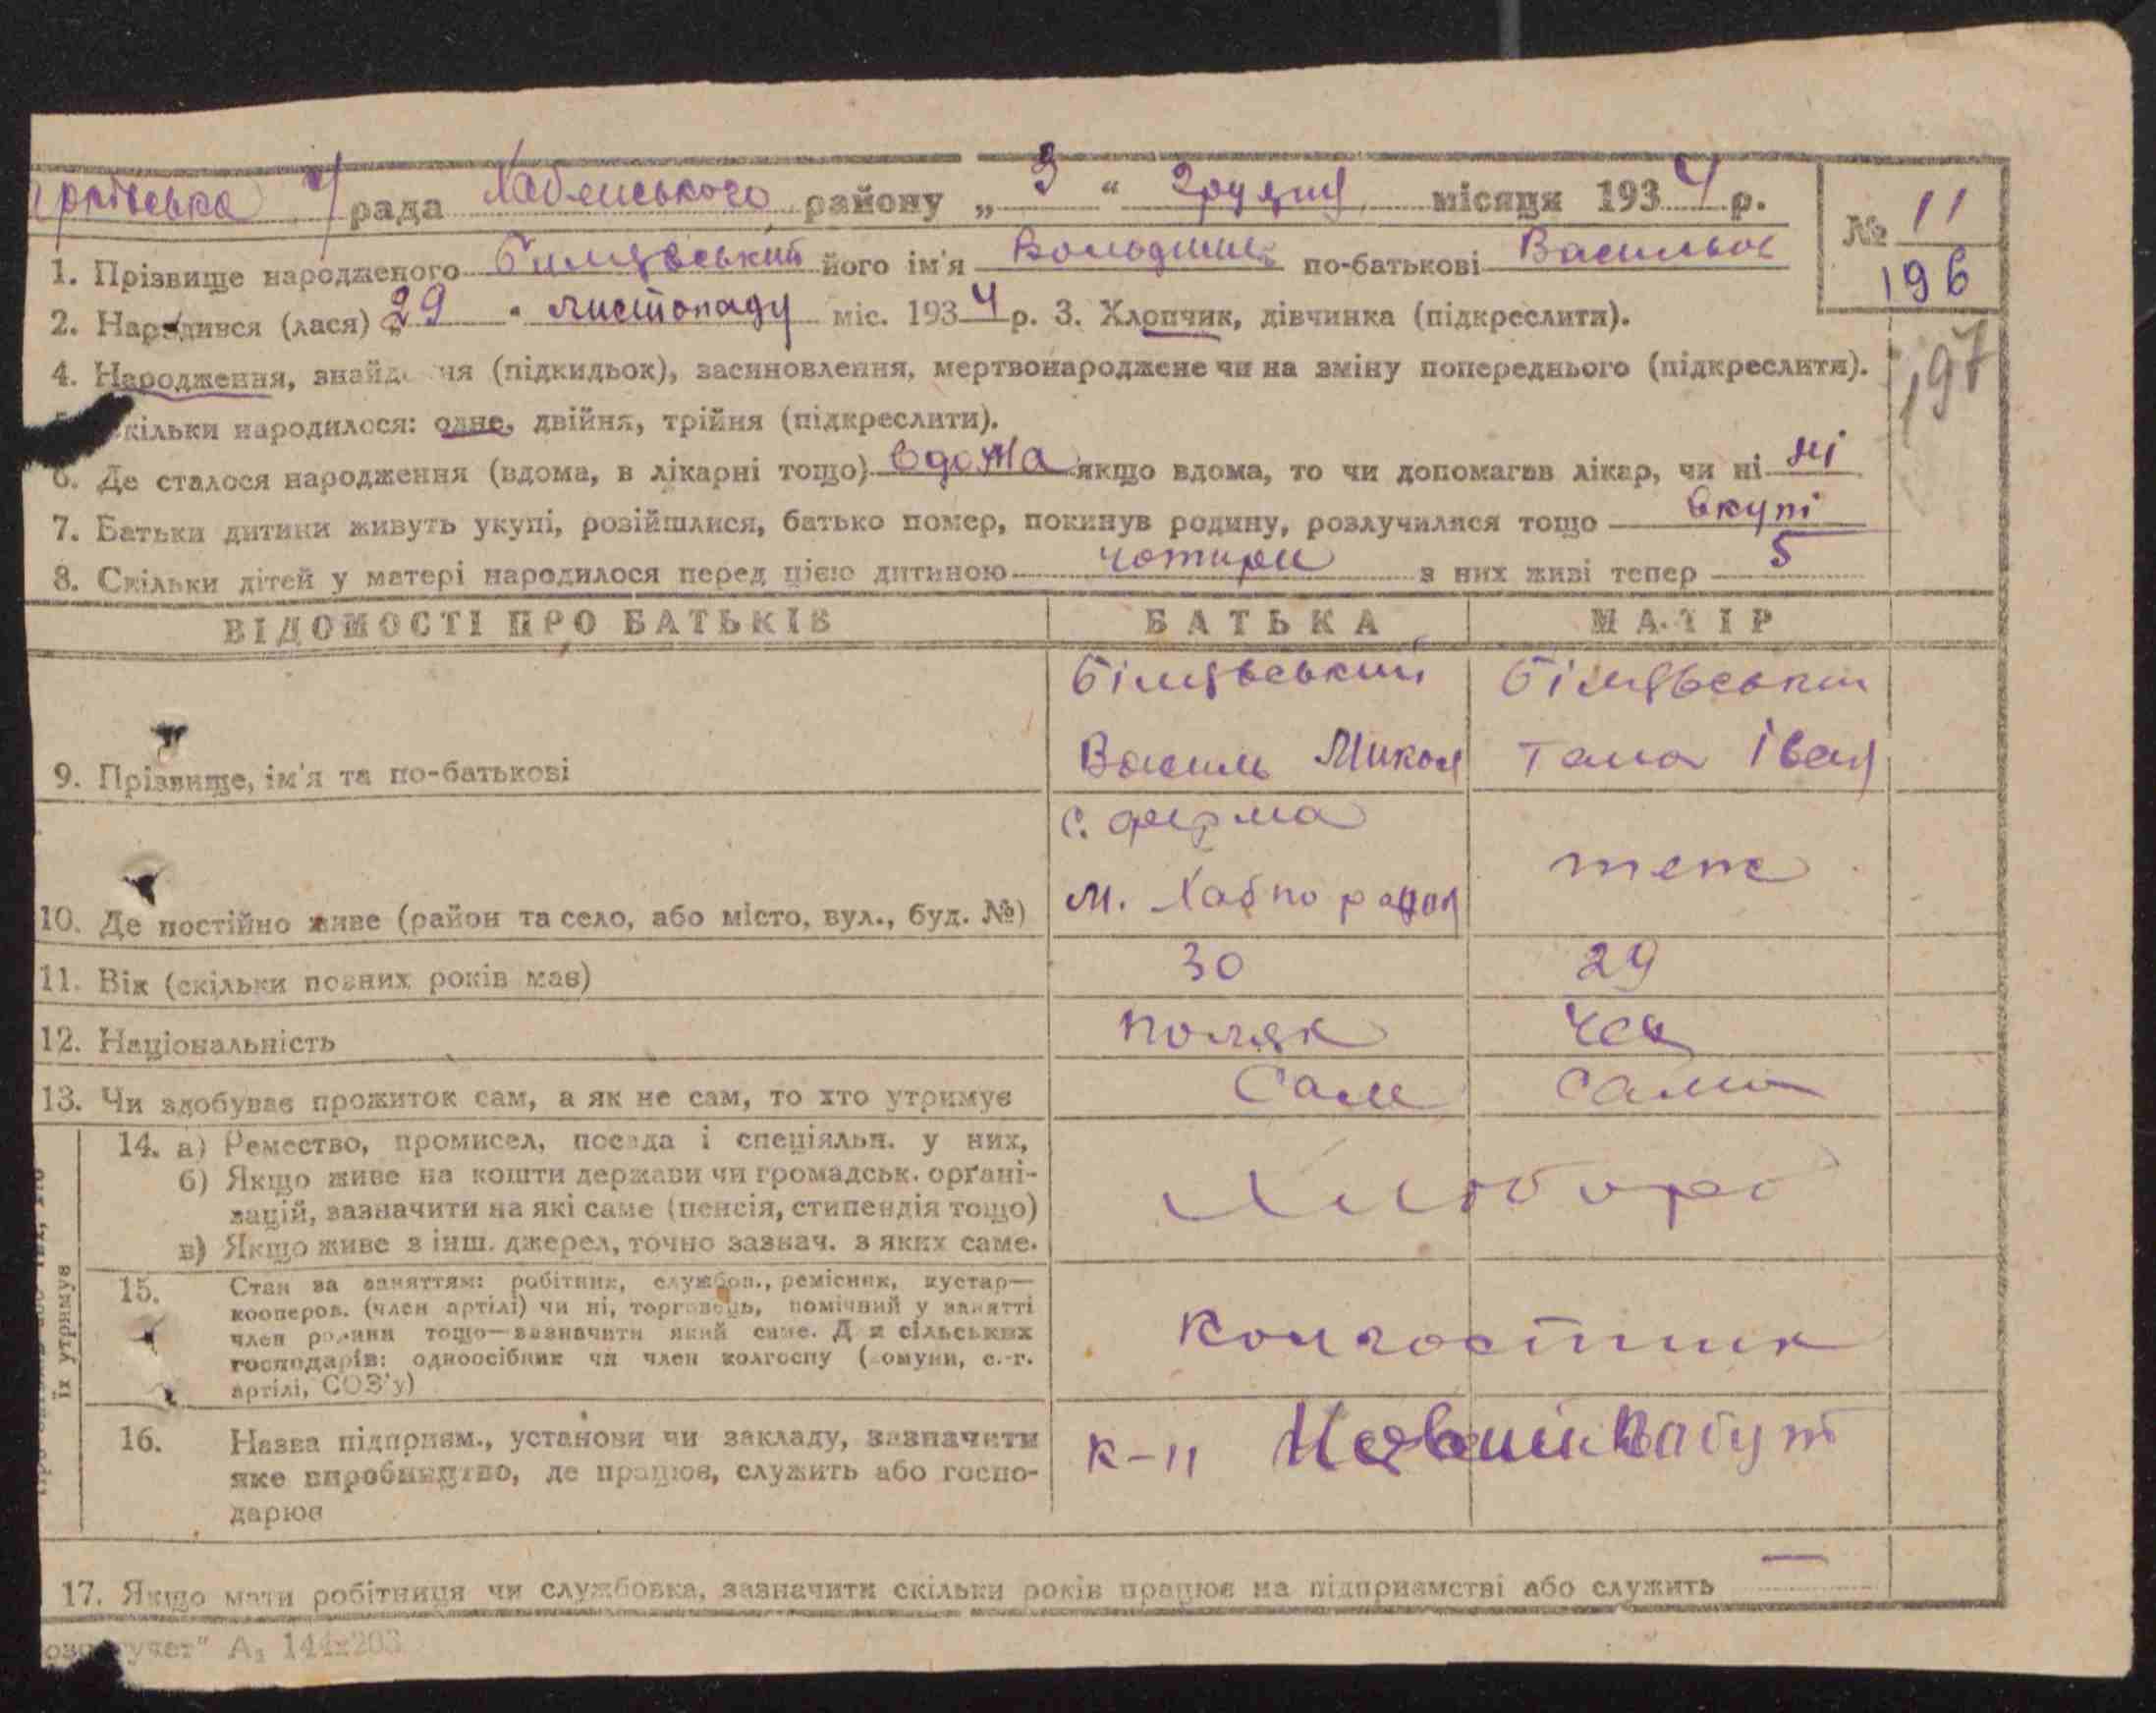 рада Хабенського району „ 3 “ грудня місяця 1934 р.
№ 11
196
197
1. Прізвище народженого його ім'я Володимир по-батькові Васильов
2. Народився (лася) 29 " листопаду міс. 1934 р. 3. Хлопчик, дівчинка (підкреслити).
4. Народження, знайд ня (підкидьок), засиновлення, мертвонароджене чи на зміну попереднього (підкреслити).
кільки народилося: одне, двійня, трійня (підкреслити).
6. Де сталося народження (вдома, в лікарні тощо) вдома якщо вдома, то чи допомагав лікар, чи ні ні
7. Батьки дитини живуть укупі, розійшлися, батько помер, покинув родину, розлучилися тощо вкупі
8. Скільки дітей у матері народилося перед цією дитиною чотири з них живі тепер 5
ВІДОМОСТІ ПРО БАТЬКІВ БАТЬКА МАТІР
Василь Микол Іван
9. Прізвище, ім'я та по-батькові
с. ферма
м. теж
10. Де постійно живе (район та село, або місто, вул., буд. №)
11. Вік (скільки повних років має) 30 29
12. Національність поляк чех
13. Чи здобуває прожиток сам, а як не сам, то хто утримує сам сама
14. а) Ремество, промисел, посада і спеціяльн. у них,
б) Якщо живе на кошти держави чи громадськ. орґані-
зацій, зазначити на які саме (пенсія, стипендія тощо)
в) Якщо живе з інш. джерел, точно зазнач. з яких саме.
Хлібороб
15. Стан за заняттям: робітник, службов., ремісник, кустар—
кооперов. (член артілі) чи ні, торговець, помічний у занятті
член родини тощо—зазначити який саме. Для сільських
господарів: одноосібник чи член колгоспу (комуни, с.-г.
артілі, СОЗ'у)
Колгоспник
16. Назва підприєм., установи чи закладу, зазначити
яке виробництво, де працює, служить або госпо-
дарює
к-п
їх утримує
17. Якщо мати робітниця чи службовка, зазначити скільки років працює на підприємстві або служить —
учет" А₅ 144х203